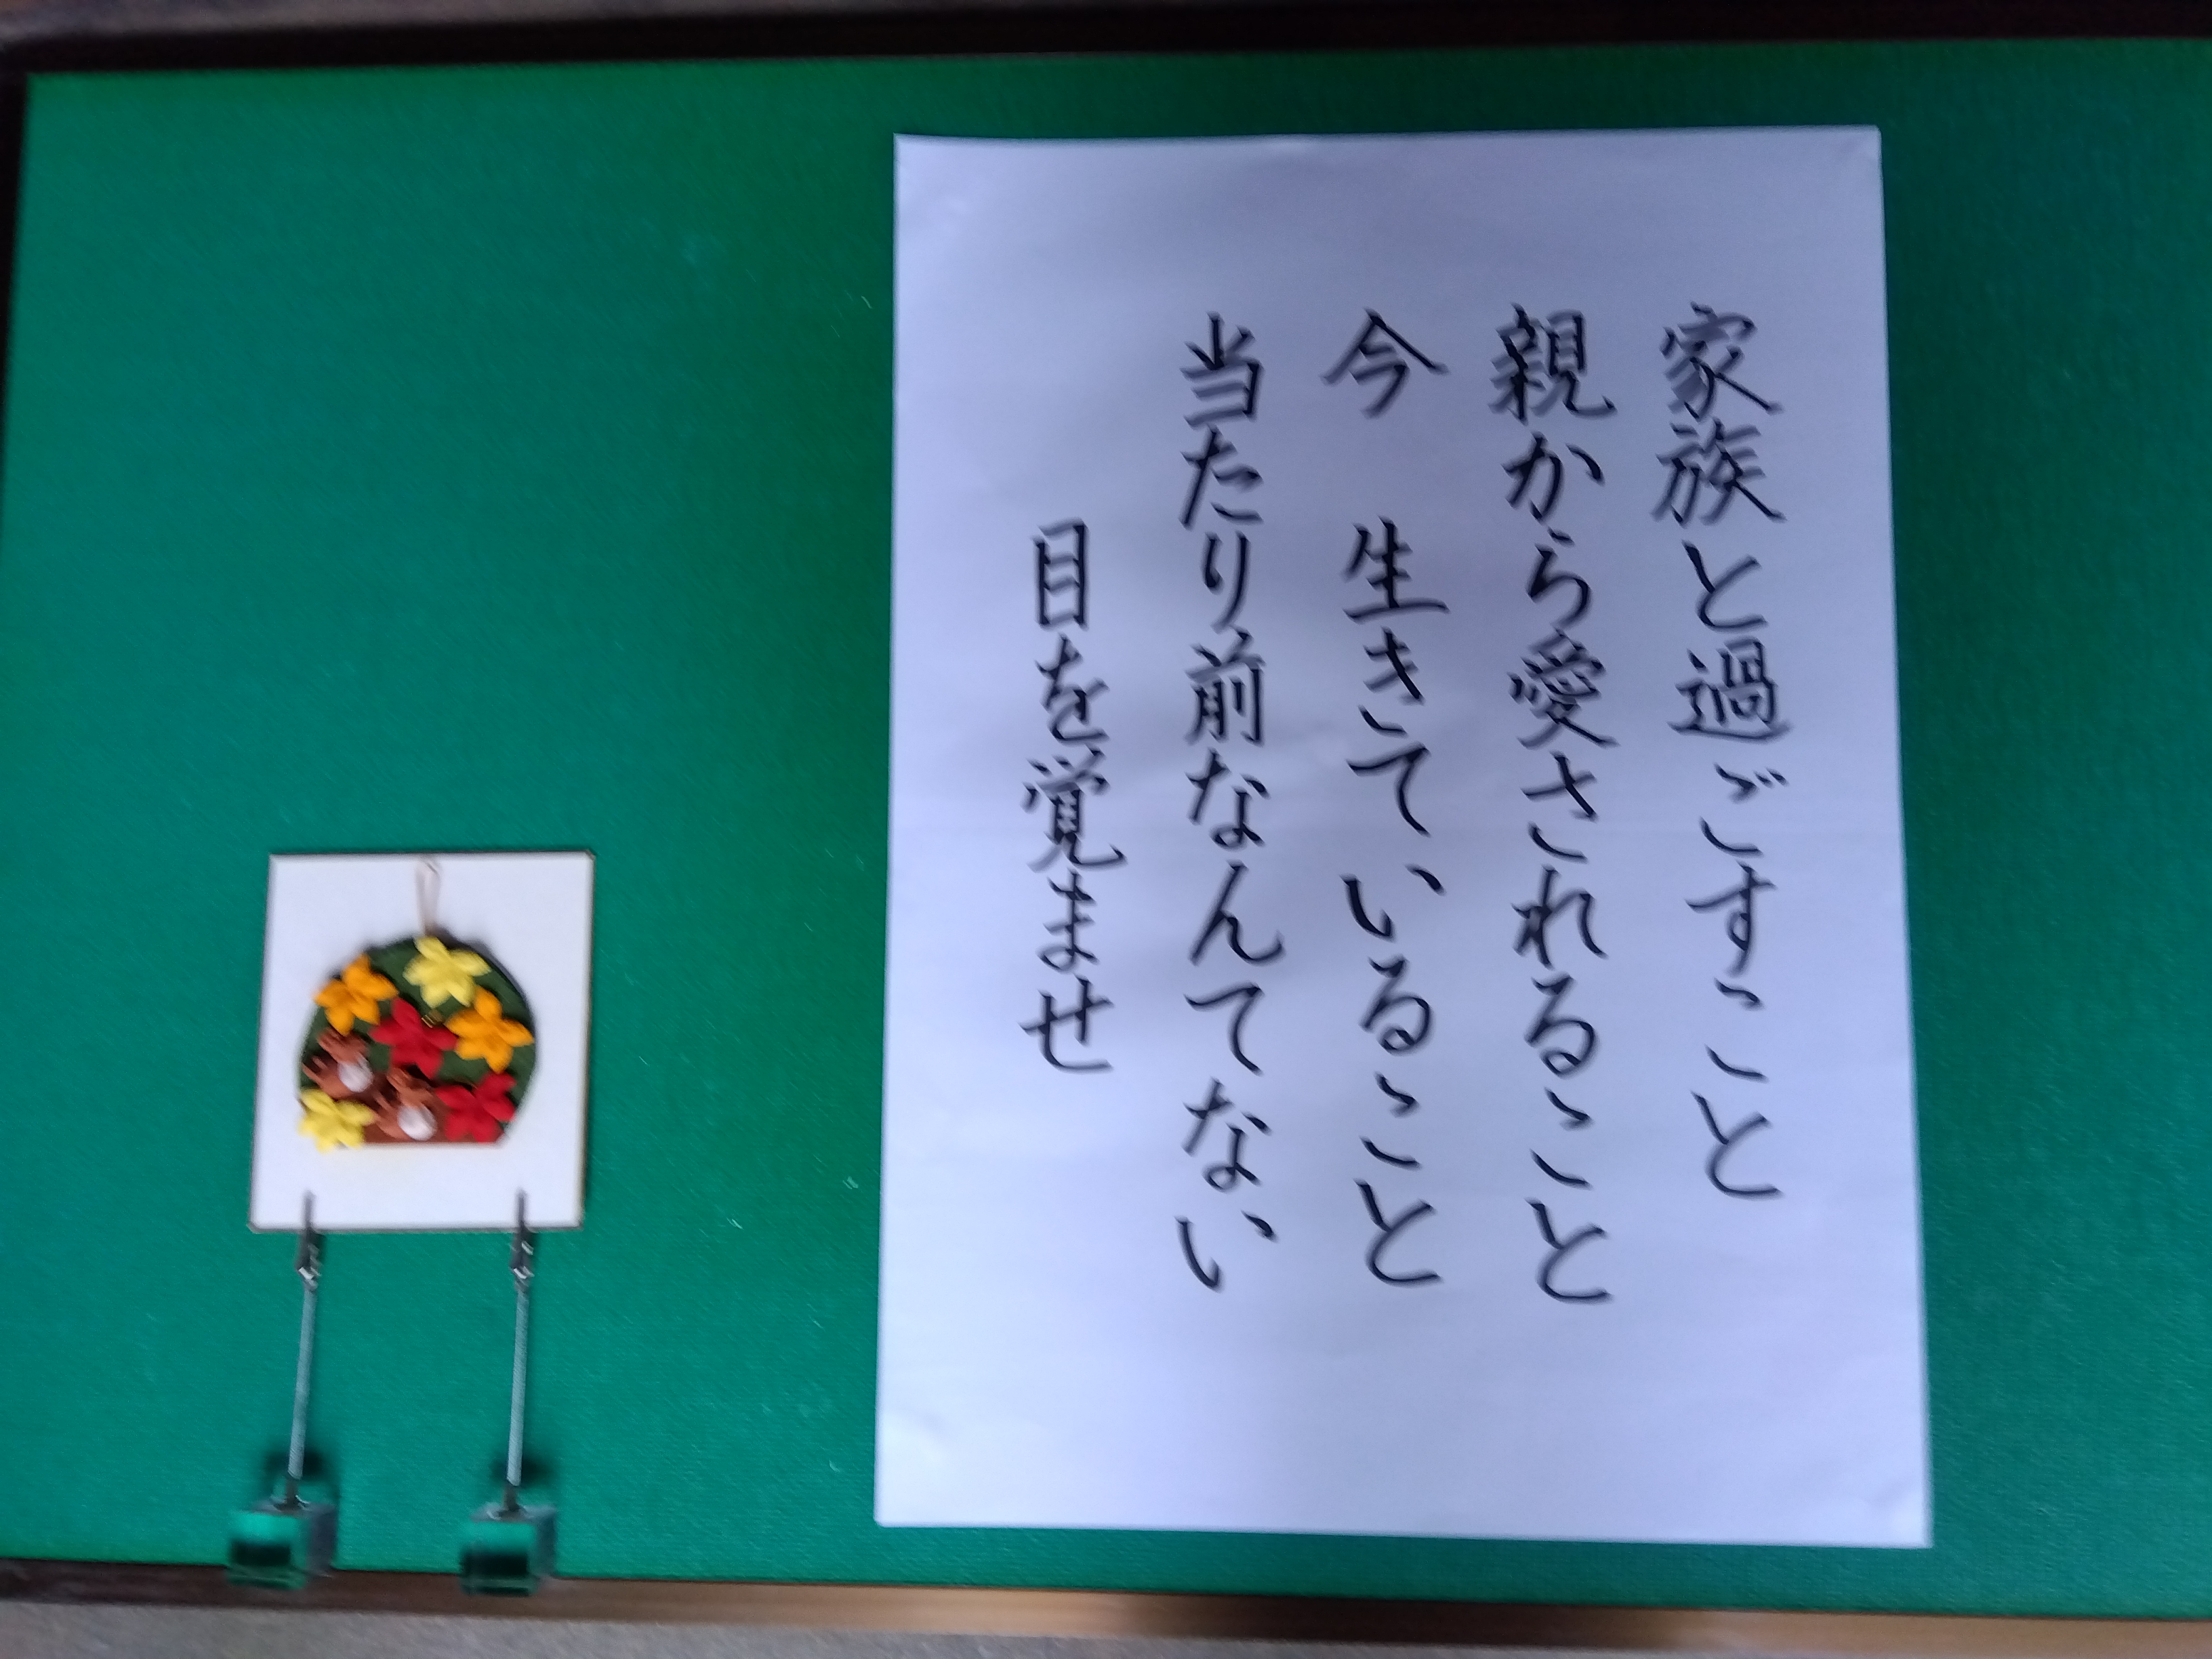 家族と過ごすこと
親から愛されること
今　生きていること
当たり前なんてない
目を覚ませ